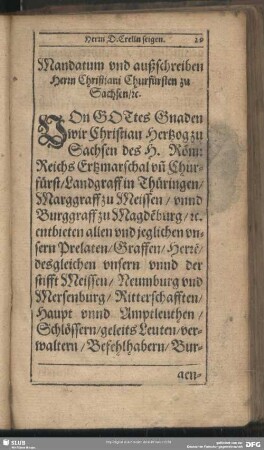 Herrn D. Crelln seigen. 29
Mandatum vnd außschreiben
Herrn Christiani Churfürsten zu
Sachsen/ꝛc.
VOn GOTtes Gnaden
wir Christian Hertzog zu
Sachsen des H. Röm:
Reichs Ertzmarschal vñ Chur-
fürst/Landgraff in Thüringen/
Marggraff zu Meissen/ vnnd
Burggraff zu Magdeburg/ ꝛc.
entbieten allen vnd jeglichen vn-
sern Prelaten/Graffen/ Herrē
desgleichen vnsern vnnd der
stifft Meissen/ Neumburg vnd
Mersenburg/ Ritterschafften/
Haupt vnnd Amptleuthen/
Schlössern/geleits Leuten/ver-
waltern/ Befehlhabern/ Bur-
gen-
SLUB